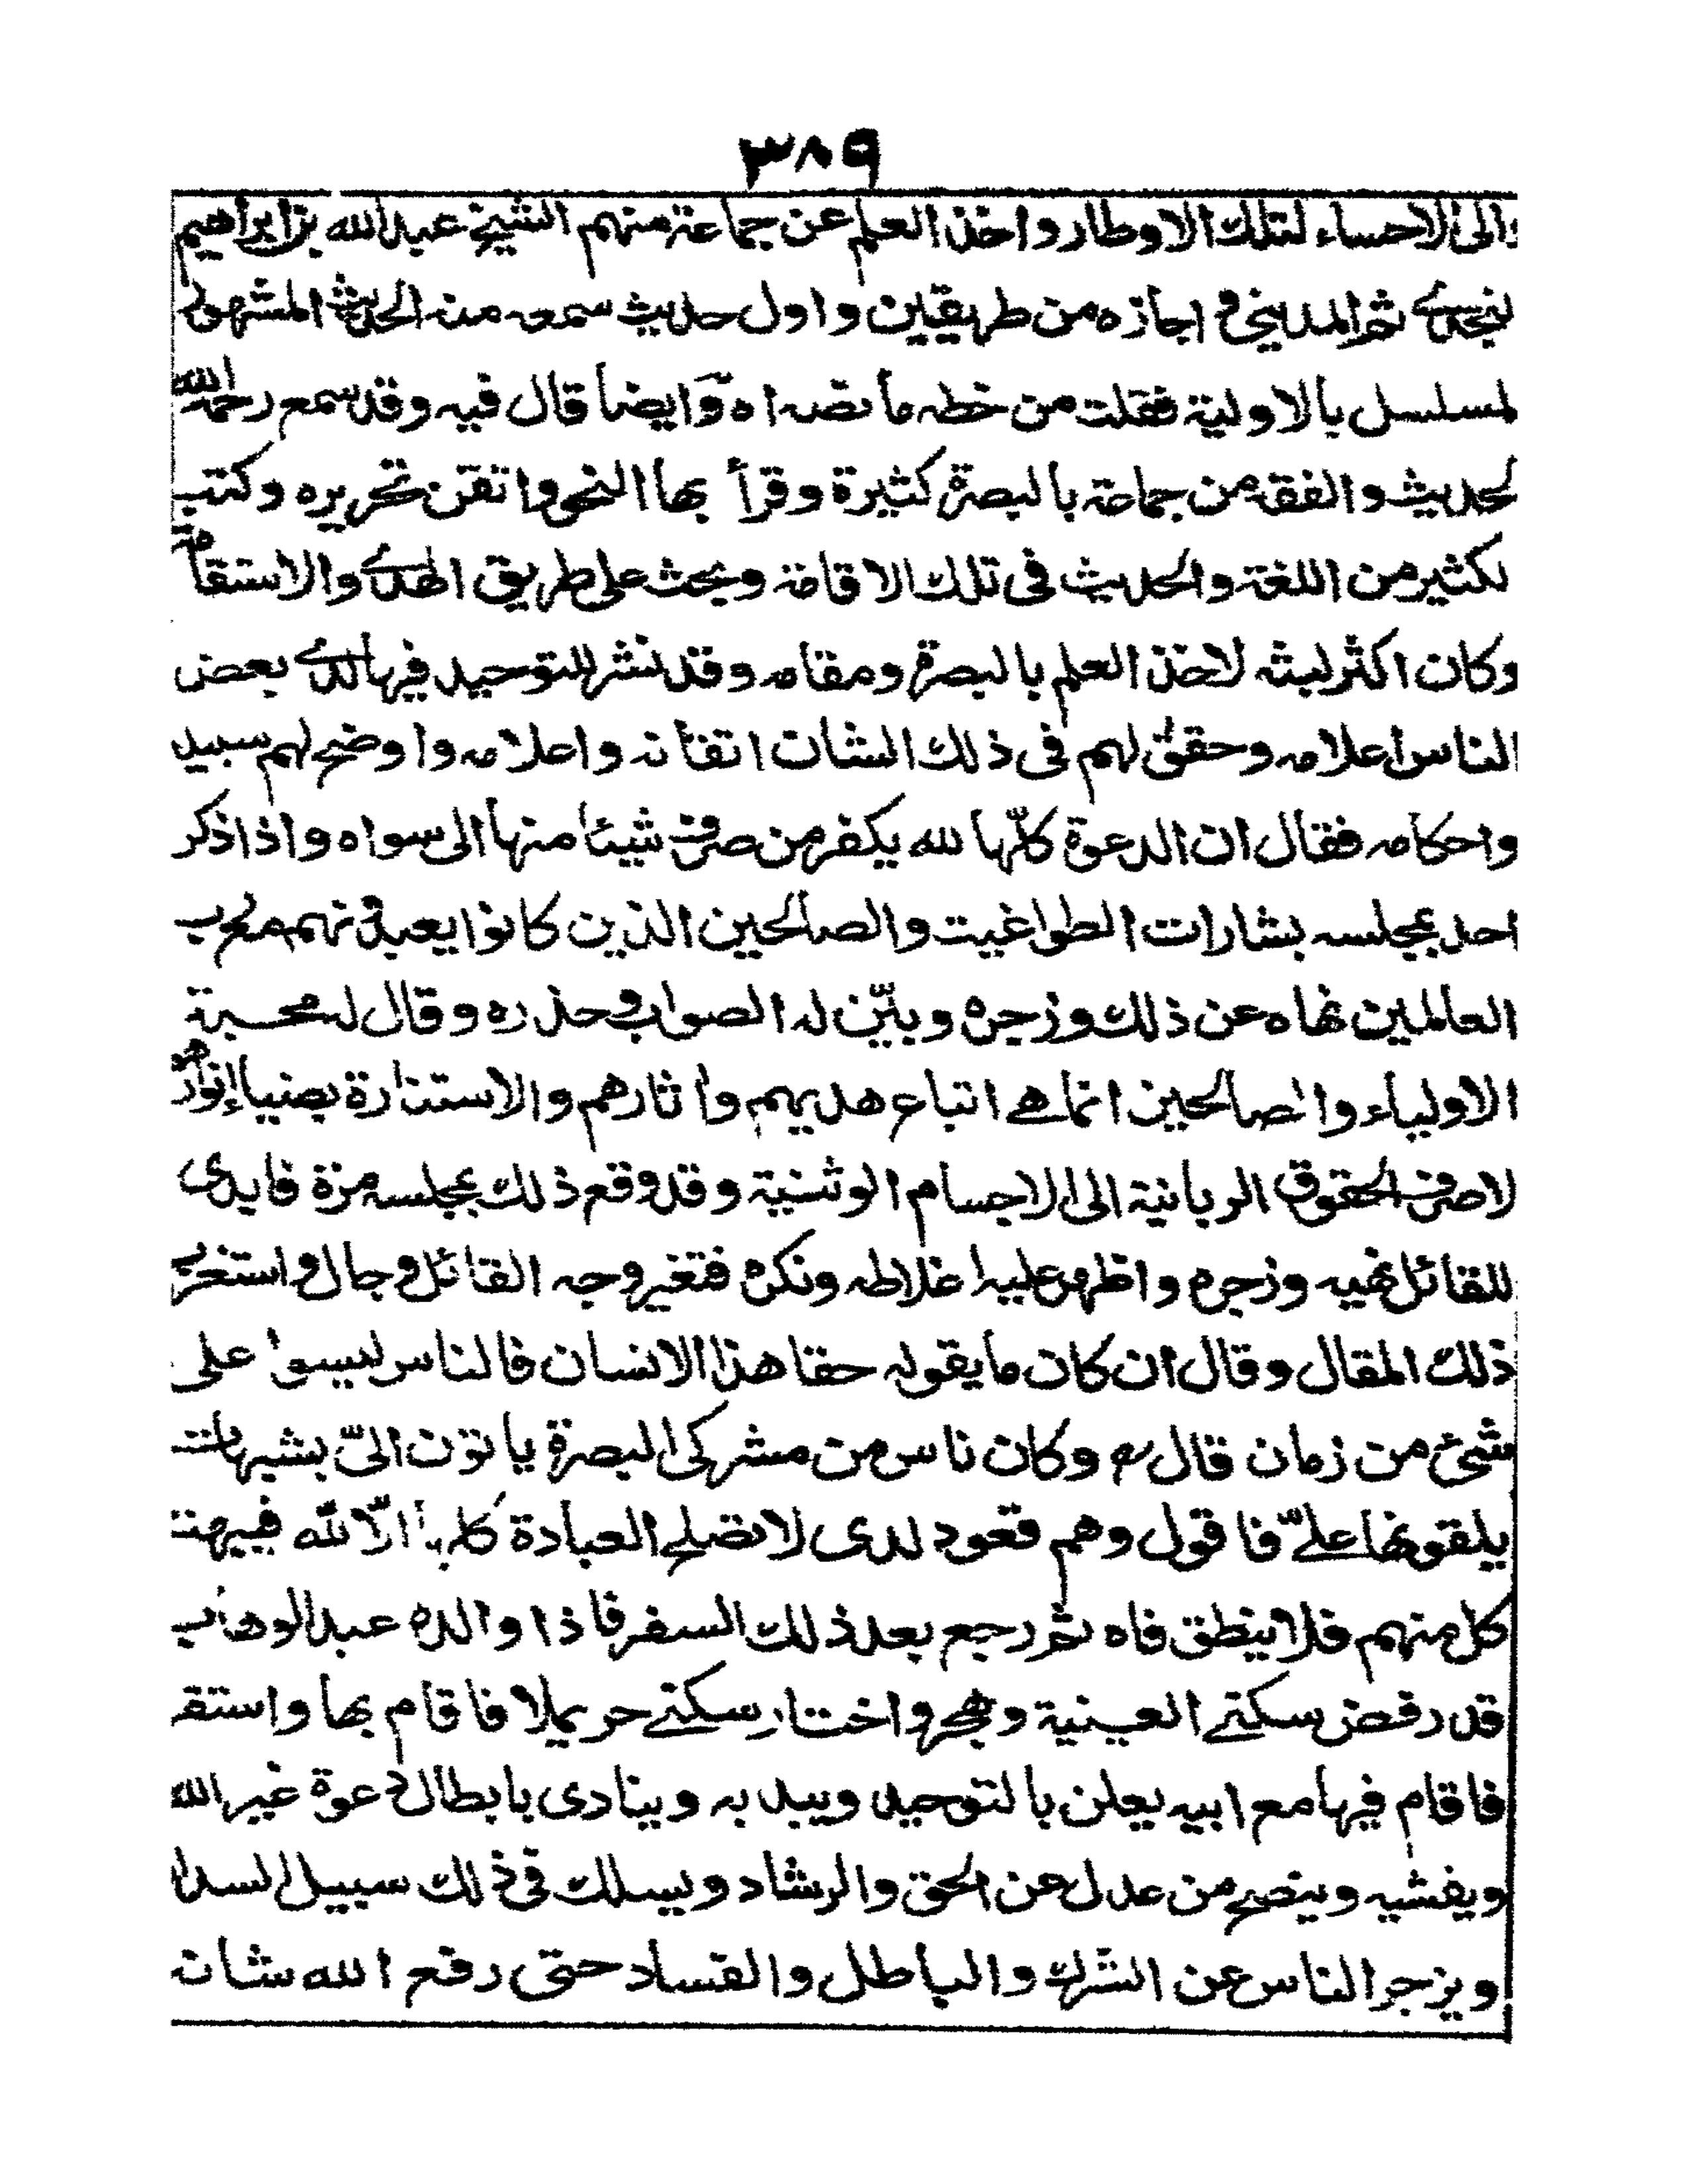 ٣٨٩
والى الاحساء لتلك الاوطار واخذ العلم عن جماعة منهم الشيخ عبد الله بن ابراهيم
لنجدے ثم المديني واجازه من طريقين واول حديث سمعه منه الحديث المشهور
لمسلسل بالاولية فنقلت من خطه ما نصه اه وايضا قال فيه وقد سمع رحمه الله
لحديث والفقه من جماعة بالبصرة كثيرة وقرأ بها النحو واتقن تحريره وكتب
لكثير من اللغة والحديث في تلك الاقامة ويحث على طريق الهدے والاستقامة
وكان اكثر لبثه لاخذ العلم بالبصرة ومقامه وقد نشر للتوحيد فيها لدے بعض
الناس اعلامه وحقق لهم في ذلك الشان اتقانه واعلامه واوضح لهم سبيل
واحكامه فقال ان الدعوة كلّها لله يكفر من صرف شيئا منها الى سواه واذا ذكر
احد بمجلسه بشارات الطواغيت والصالحين الذين كانوا يعبدونهم مع رب
العالمين نهاه عن ذلك وزجره وبيّن له الصواب وحذره وقال له محبة
الاولياء والصالحين انما هے اتباع هديهم واثارهم والاستنارة بضياء انوارهم
لا صرف الحقوق الربانية الى الاجسام الوثنية وقد وقع ذلك بمجلسه مرة فابدى
للقائل نهيه وزجره واظهر عليه اغلاطه ونكره فتغير وجه القائل وحال واستغرب
ذلك المقال وقال ان كان ما يقوله حقا هذا الانسان فالناس ليسوا على
شئ من زمان قال ره وكان ناس من مشركى البصرة ياتون الىّ بشبهات
يلقونها علےّ فاقول وهم قعود لدى لا تصلح العبادة كلها الّا لله فيبهت
كل منهم فلا ينطق فاه ثم رجع بعد ذلك السفر فاذا والده عبد الوهاب
قد رفض سكنے العيينة وهجر واختار سكنے حريملا فاقام بها واستقر
فاقام فيها مع ابيه يعلن بالتوحيد ويبديه وينادى بابطال دعوة غير الله
ويفشيه وينصح من عدل عن الحق والرشاد ويسلك في ذلك سبيل السداد
ويزجر الناس عن الشرك والباطل والفساد حتى رفع الله شانه